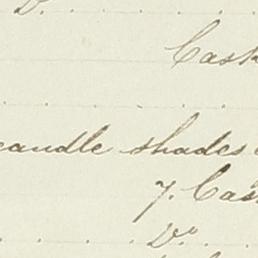 Do
Cask
candle shades
7. Cas
Do